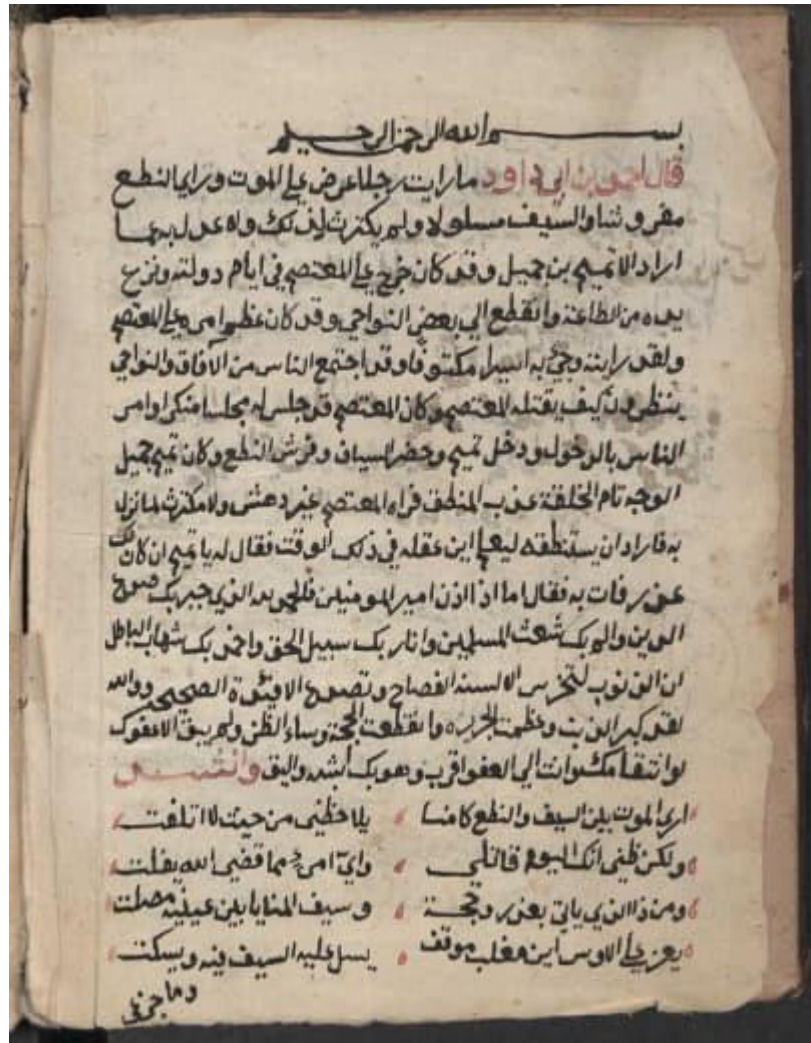 بسم الله الرحمن الرحيم
قال احمد بن ابي داود ما رايت رجلا عرض علي الموت وراي النطع
مفروشا والسيف مسلولا ولم يكترث لذلك ولا عدل به عما
اراد الا تميم بن جميل وقد كان خرج علي المعتصم في ايام دولته ونزع
يده من الطاعة وانقطع الي بعض النواحي وقد كان عظم امره علي المعتصم
ولقد رايته وجيء به اسيرا مكتوفا وقد اجتمع الناس من الآفاق والنواحي
ينظرون كيف يقتله المعتصم وكان المعتصم قد جلس له مجلسا منكرا وامر
الناس بالدخول ودخل تميم وحضر السياف وفرش النطع وكان تميم جميل
الوجه تام الخلقة عذب المنطق فراه المعتصم غير دهش ولا مكترث لما نزل
به فاراد ان يستنطقه ليعلم اين عقله في ذلك الوقت فقال له يا تميم ان كان لك
عذر فات به فقال اما اذا اذن امير المومنين فالحمد لله الذي جبر بك صدع
الدين ولم بك شعث المسلمين وانار بك سبيل الحق واخمد بك شهاب الباطل
ان الذنوب لتخرس الالسنة الفصاح وتصدع الافئدة الصحيحة ووالله
لقد كبر الذنب وعظمت الجريره وانقطعت الحجة وساء الظن ولم يبق الا عفوك
او انتقامك وانت الي العفو اقرب وهو بك اشبه واليق وانشد
اري الموت بين السيف والنطع كامنا يلاحظني من حيث لا اتلفت
ولكن ظني انك اليوم قاتلي واي امرء مما قضي الله يفلت
ومن ذا الذي ياتي بعذر وحجة وسيف المنايا بين عينيه مصلت
يعز علي الاوس ابن تغلب موقف يسل عليه السيف فيه ويسكت
وما جزعي